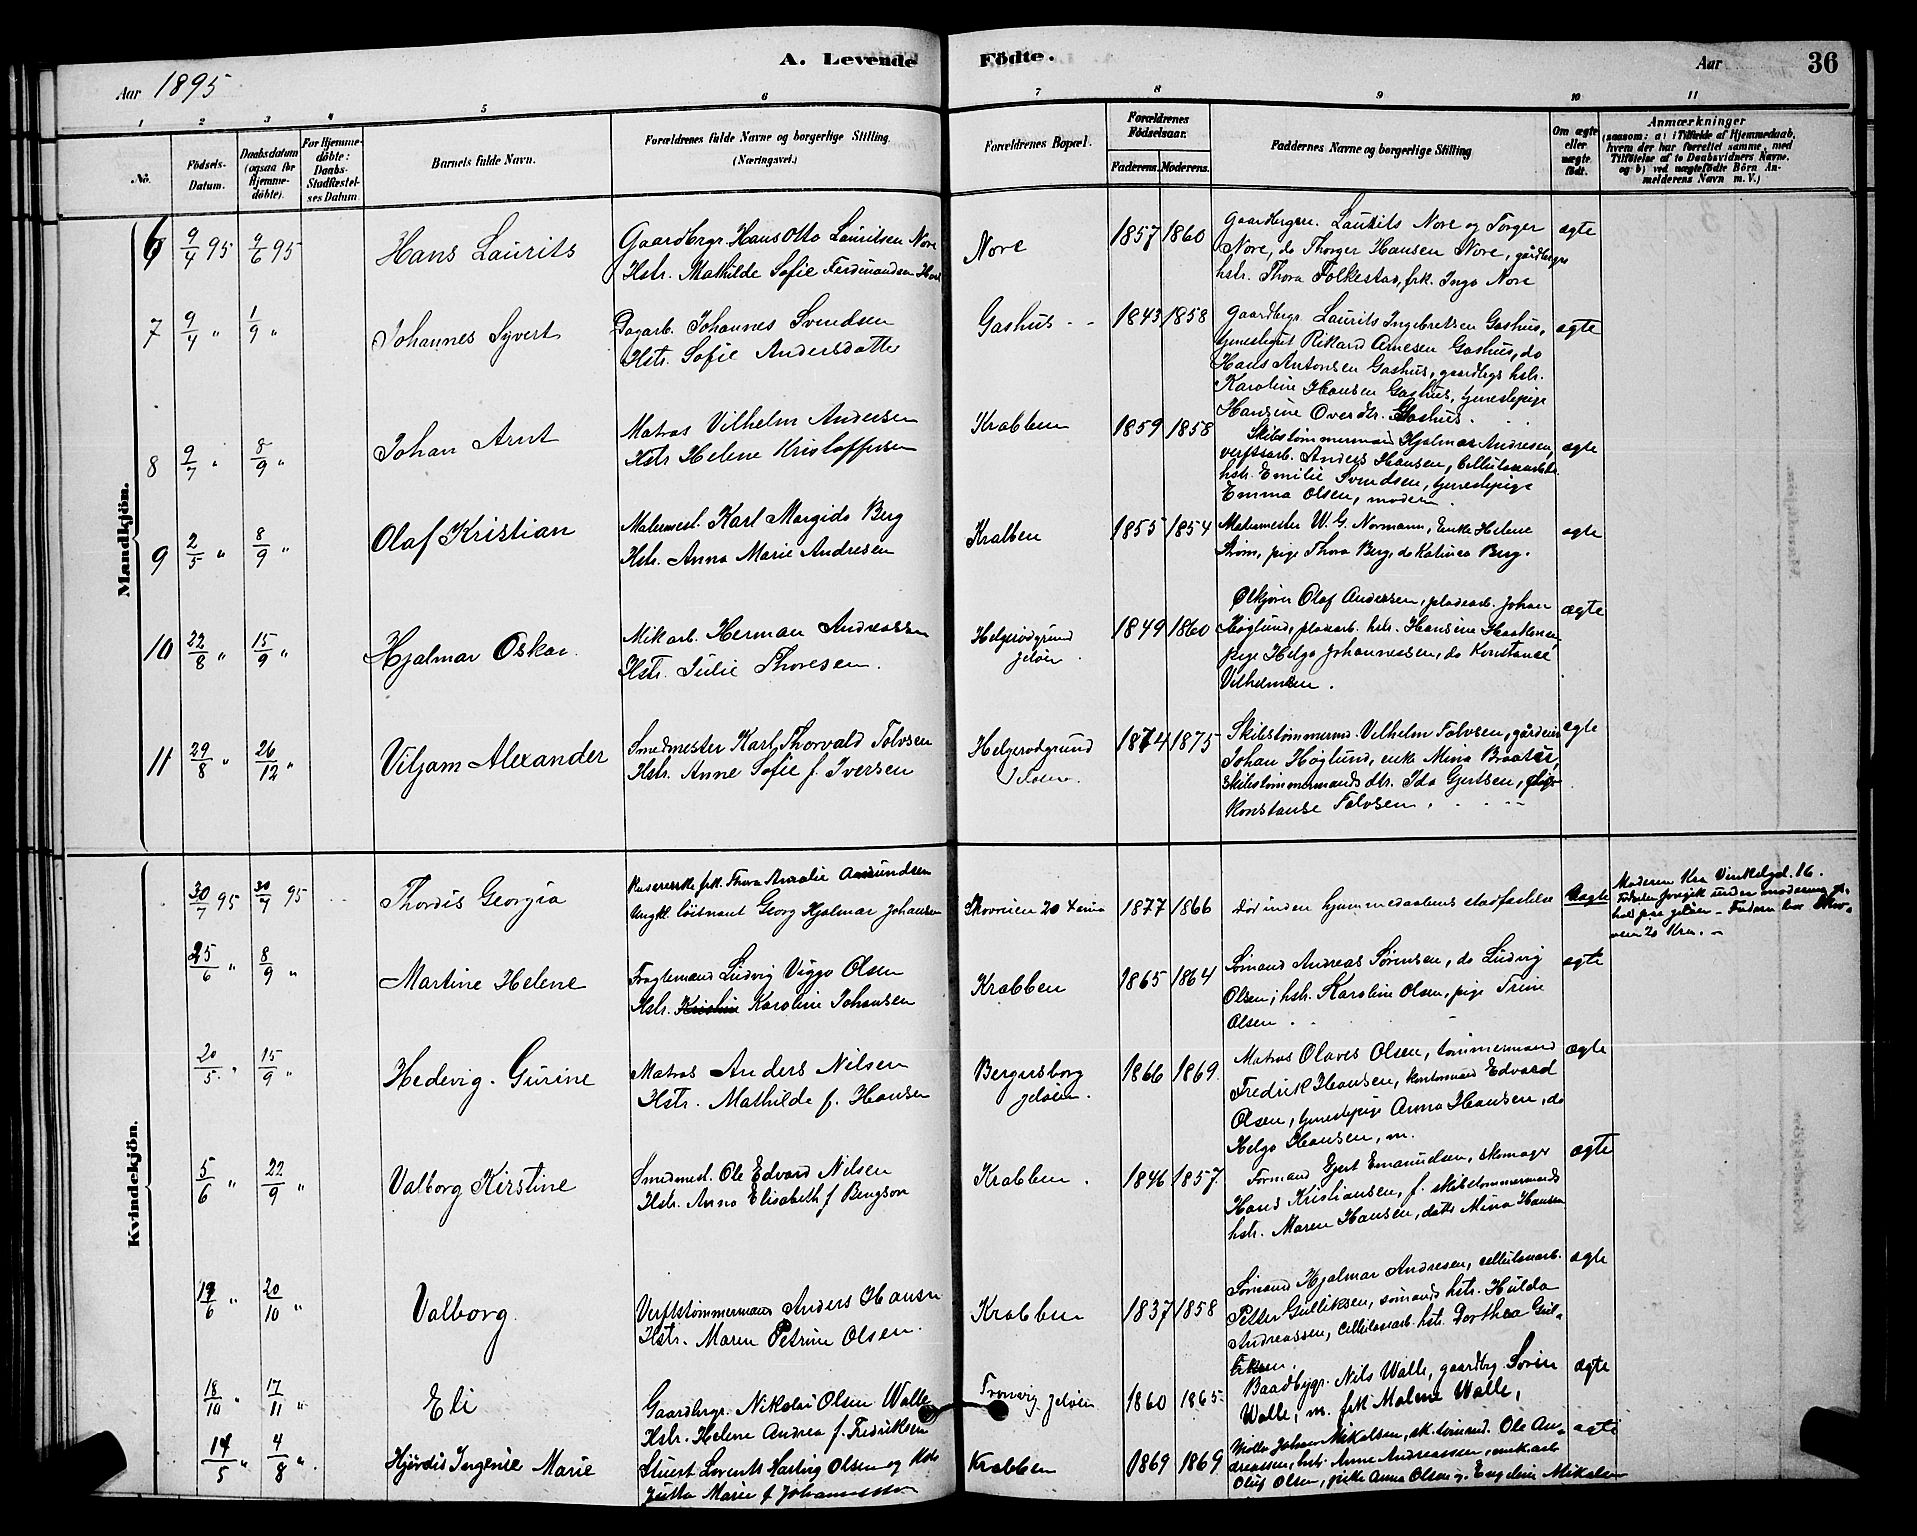 A. Levende Födte.
Aar 1895
Aar
36
1 2 3 4 5 6 7 8 9 10 11
No.
Födsels-
Datum.
Daabsdatum
(ogsaa for
Hjemme-
döbte).
For Hjemme-
döbte:
Daabs-
Stadfæstel-
ses Datum
Barnets fulde Navn.
Forældrenes fulde Navne og borgerlige Stilling.
(Næringsvei.)
Forældrenes Bopæl.
Forældrenes
Födselsaar.
Faderens. Moderens.
Faddernes Navne og borgerlige Stilling
Om ægte
eller
uægte
födt.
Anmærkninger
(saasom: a) i Tilfælde af Hjemmedaab,
hvem der har forrettet samme, med
Tilföielse af to Daabsvidners Navne.
og b) ved uægtefödte Börn An-
melderens Navn m. V.)
Mandkjön.
6 9/4 95 9/6 95 Hans Laurits
Gaardbrgr. Hans Otto Lauritsen Nore
Hstr. Mathilde Sofie Ferdinandsen
Nore 1857 1860
Gaardbrgere. Laurits Nore og Torger
Nore, do Thorger Hansen Nore, gårdbrgs
hstr. Thora Folkestad, frk. Inga Nore
ægte
7 9/4 " 1/9 " Johannes Syvert
Dagarb. Johannes Svendsen
Hstr. Sofie Andersdatter
Gashus 1843 1858
Gaardbgr Laurits Ingebretsen Gashus,
tjenestegut Rikard Arnesen Gashus, do
Hans Antonsen Gashus, gaardbgs hstr.
Karoline Hansen Gashus, tjenestepige
Hansine Gashus.
ægte
8 9/7 " 8/9 " Johan Arnt
Matros Vilhelm Andersen
Hstr Helene Kristoffersen
Krabben 1859 1858
Skibstømmermand Hjalmar Andresen,
verftsarb. Anders Hansen, cellulosearbds
hstr. Emilie Svendsen, tjenestepige
Emma Olsen, moderen
ægte
9 2/5 " 8/9 " Olaf Kristian
Malermest. Karl Margido Berg
Hstr. Anna Marie Andresen
Krabben 1855 1854
Malermester W. G. Normann, Enke Helene
Strøm, pige Thora Berg, do Katinca Berg.
ægte
10 22/8 " 15/9 " Hjalmar Oskar.
Mikarb. Herman Andreassen
Hstr. Julie Thoresen.
Helgerødgrund
Jeløen. 1849 1860
Ølkjører Olaf Andersen, pladsarb. Johan
Høglund, pladsarb. hstr. Hansine Haakonsen
pige Helga Johannessen, do Konstanse
Vilhelmsen.
ægte
11 29/8 " 26/12 " Viljam Alexander
Smedmester Karl Thorvald Tolvsen
Hstr. Anne Sofie f. Iversen
Helgerødgrund
Jeløen. 1874 1875
Skibstømmermd Vilhelm Tolvsen, gårdeier
Johan Høglund, enke Mina Braaten,
skibstømmermands dtr. Ida Gjertsen, pige
Konstanse Tolvsen.
ægte
Kvindekjön.
30/7 95 30/7 95 Thordis Georgia
frk. Thora Amalie Amundsen
Ungkl. løitnant Georg Hjalmar Johansen
Skovveien 20 Kria 1877 1866
Død inden hjemmedaabens stadfæstelse
Uægte
Moderen Kra Vinkelgd. 16.
Fødselen foregik under moderens op-
hold paa Jeløen - Faderen bor Skov-
veien 20 Kra. -
25/6 " 8/9 " Martine Helene
Fragtemand Ludvig Viggo Olsen
Hstr. Karoline Johansen
Krabben 1865 1864
Sømand Andreas Sørensen, do Ludvig
Olsen, hstr. Karoline Olsen, pige Trine
Olsen.
ægte
20/5 " 15/9 " Hedevig Gurine
Matros Anders Nilsen
Hstr. Mathilde f. Hansen
Bergersborg
Jeløen. 1866 1869
Matros Olaves Olsen, tømmermand
Fredrik Hansen, kontormand Edvard
Olsen, tjenestepige Anna Hansen, do
Helga Hansen, m.
ægte
5/6 " 22/9 " Valborg Kirstine
Smedmest. Ole Edvard Nilsen
Hstr. Anna Elisabeth f Bengson
Krabben. 1846 1857
Formand Gjert Emanuelsen, skomager
Hans Kristiansen, f. skibstømmermands
hstr. Maren Hansen, datter Mina Hansen
ægte
19/6 " 20/10 " Valborg.
Verftstømmermann Anders Hansen
Hstr. Maren Petrine Olsen.
Krabben 1837 1858
Sømand Hjalmar Andresen, cellulosarb.
Petter Gulliksen, sømands hstr. Hulda
Andreassen, cellulosarb. hstr. Dorthea Gul-
liksen.
ægte
18/10 " 17/11 " Eli
Gaardbrgr. Nikolai Olsen Walle
Hstr. Helene Andrea f. Fredriksen
Tronvig Jeløen 1860 1865
Baadbygr. Nils Walle, gaardbg. Sørine
Walle, m. frk Malene Walle,
ægte
14/5 " 4/8 " Hjørdis Ingenie Marie
Stuert Lorents Hartvig Olsen og Hstr
Jutta Marie f Johannessen
Krabben 1869 1869
Johan Mikalsen, sk. tømmd. Ole An-
dreassen, hstr. Anne Andreassen, mekarb
Oluf Olsen, pike Anna Olsen og Engeline Mikalsen
ægte